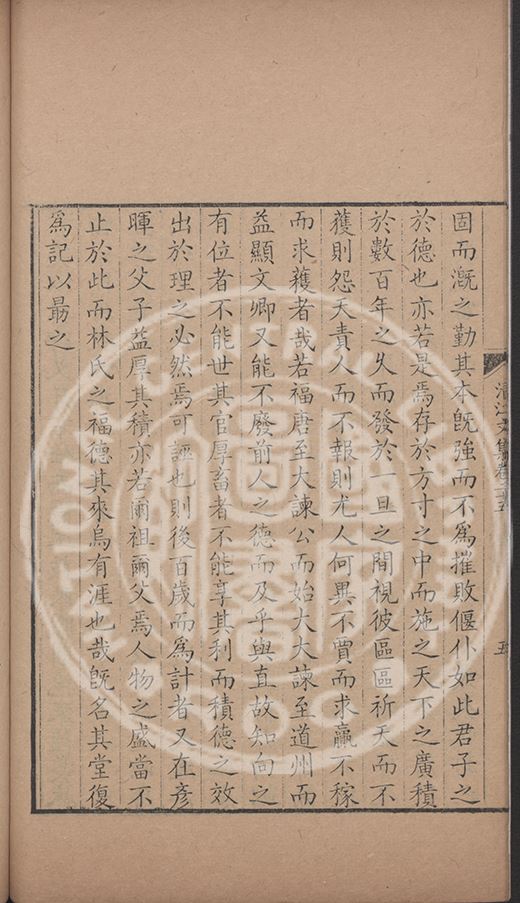 固而漑之勤其本旣強而不爲摧敗偃仆如此君子之
於德也亦若是焉存於方寸之中而施之天下之廣積
於數百年之久而發於一旦之間視彼區區祈天而不
獲則怨天責人而不報則尤人何異不賈而求贏不稼
而求穫者哉若福唐至大諫公而始大大諫至道州而
益顯文卿又能不廢前人之德而及乎與直故知向之
有位者不能世其官厚畜者不能享其利而積德之效
出於理之必然焉可誣也則後百歲而爲計者又在彥
暉之父子益厚其積亦若爾祖爾父焉人物之盛當不
止於此而林氏之福德其來烏有涯也哉旣名其堂復
爲記以勗之
清江文集卷十五
五